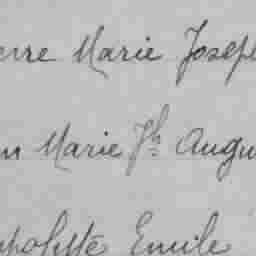 erre Marie Joseph
n Marie Jh Augu
ppolyte Emile